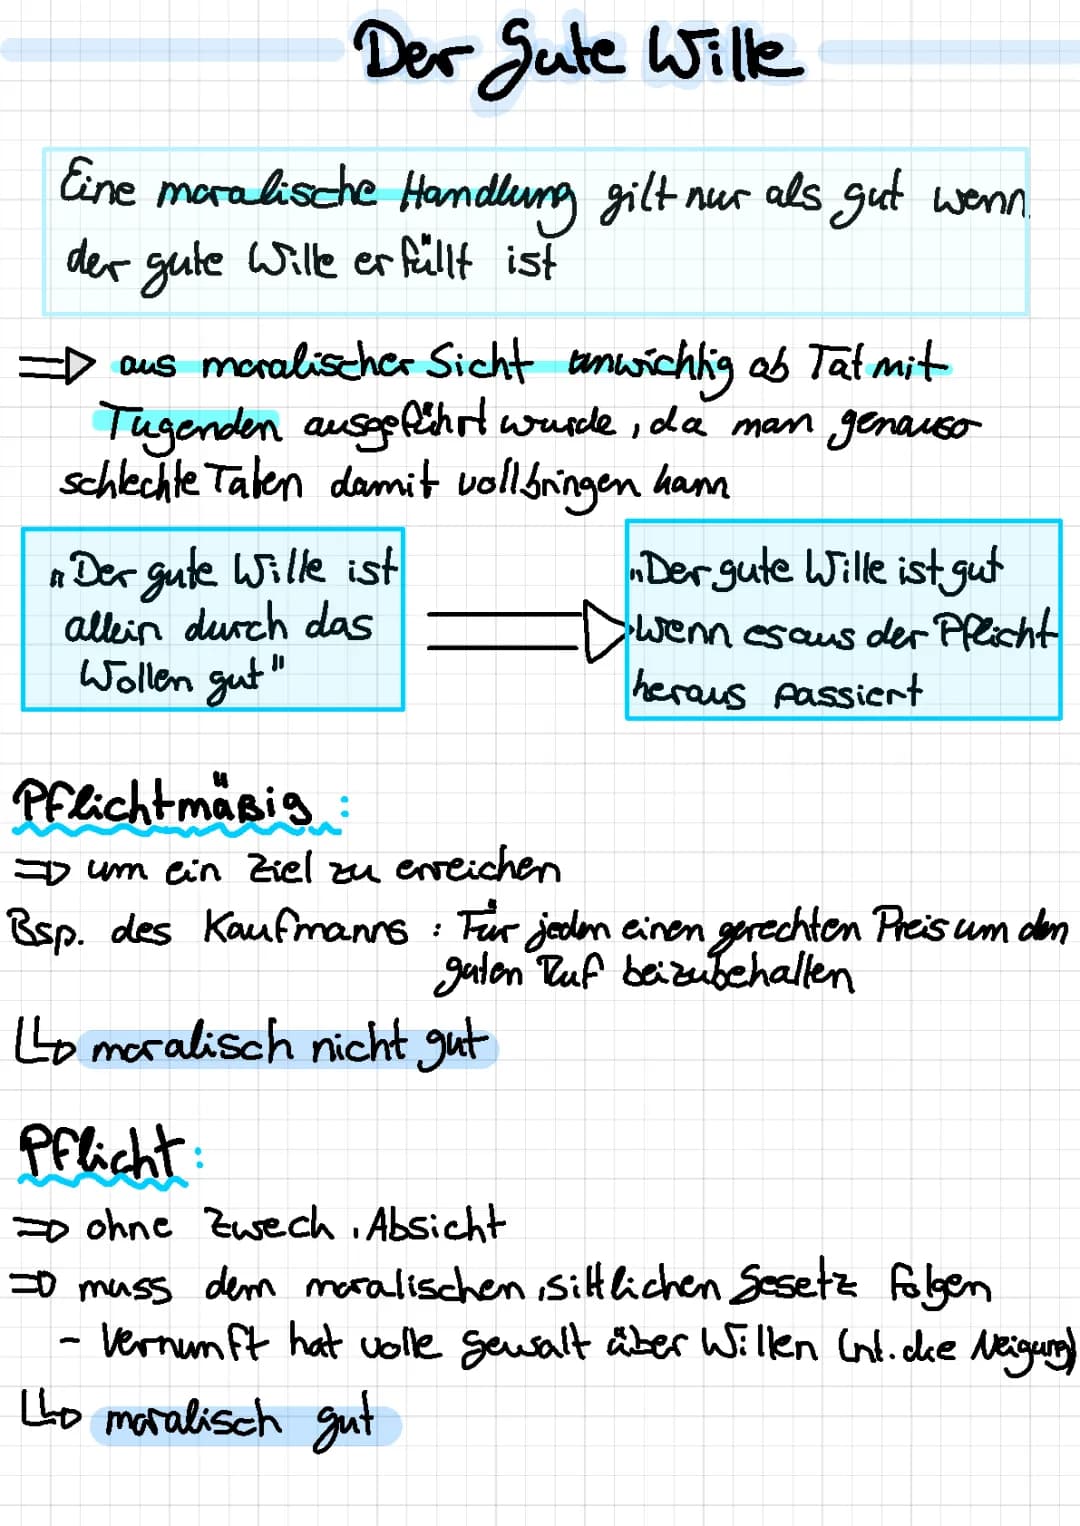 Der Gute Wille
Eine moralische Handlung gilt nur als gut wenn
der gute Wille erfüllt ist
=> aus moralischer Sicht unwichtig ob Tat mit
Tugenden ausgeführt wurde, da man genauso
schlechte Taten damit vollbringen kann
„Der gute Wille ist
allein durch das
Wollen gut"
„Der gute Wille ist gut
wenn es aus der Pflicht
heraus passiert
Pflichtmäßig:
=> um ein Ziel zu erreichen
Bsp. des Kaufmanns: Für jeden einen gerechten Preis um den
guten Ruf beizubehalten
↳ moralisch nicht gut
Pflicht:
=> ohne Zweck, Absicht
=> muss dem moralischen, sittlichen Gesetz folgen
- Vernunft hat volle Gewalt über Willen (nt. die Neigung)
↳ moralisch gut